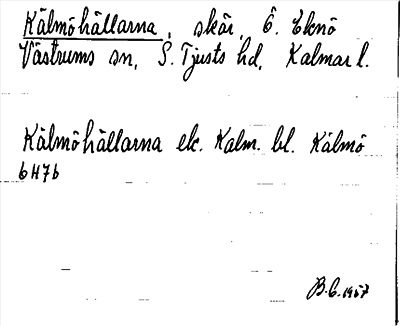 Kälmöhällarna, skär, Ö. Eknö
Västrums sn, S. Tjusts hd, Kalmar l.
Kälmöhällarna ek. Kalm. bl. Kälmö
6H7b
B.C. 1957